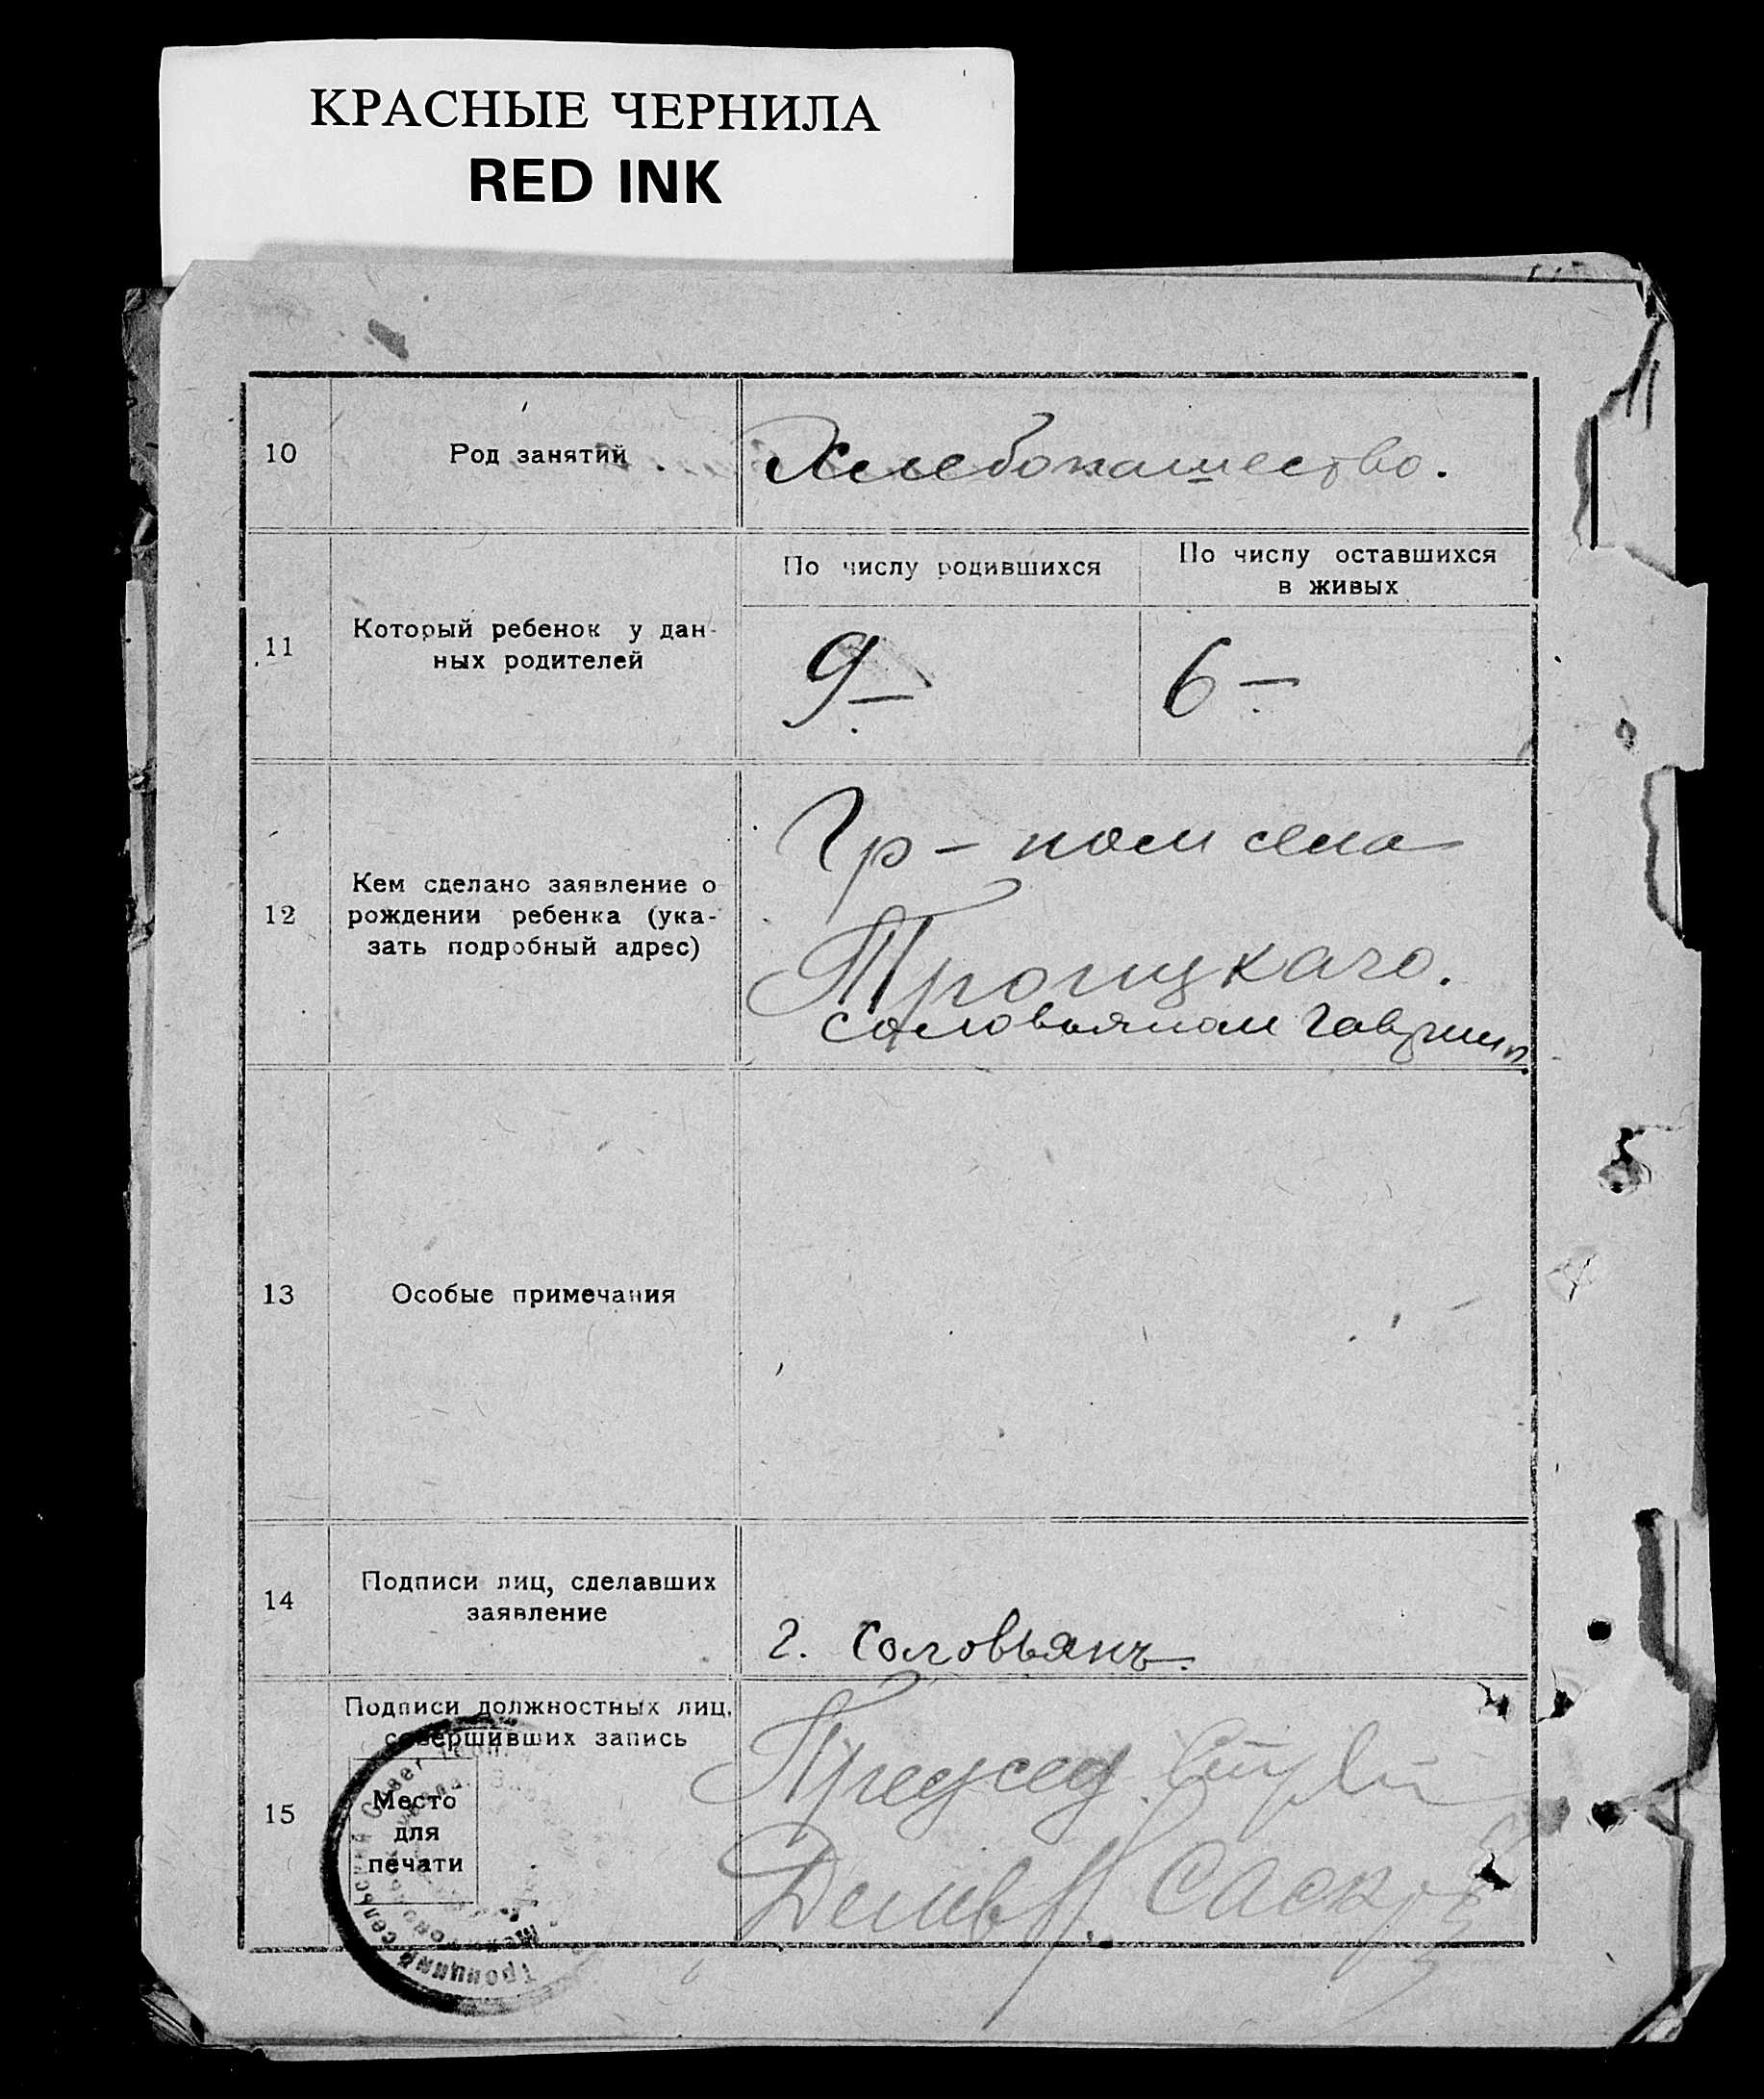 КРАСНЫЕ ЧЕРНИЛА
RED INK
10
Род занятий
Хлебопашество.
11
Который ребенок у дан-
ных родителей
По числу родившихся
9 —
По числу оставшихся
в живых
6 —
12
Кем сделано заявление о
рождении ребенка (ука-
зать подробный адрес)
Гр-ном села
Троицкаго.
Соловьяном
13
Особые примечания
14
Подписи лиц, сделавших
заявление
Г. Соловьянъ.
15
Подписи должностных лиц,
совершивших запись
Место
для
печати
Председ.